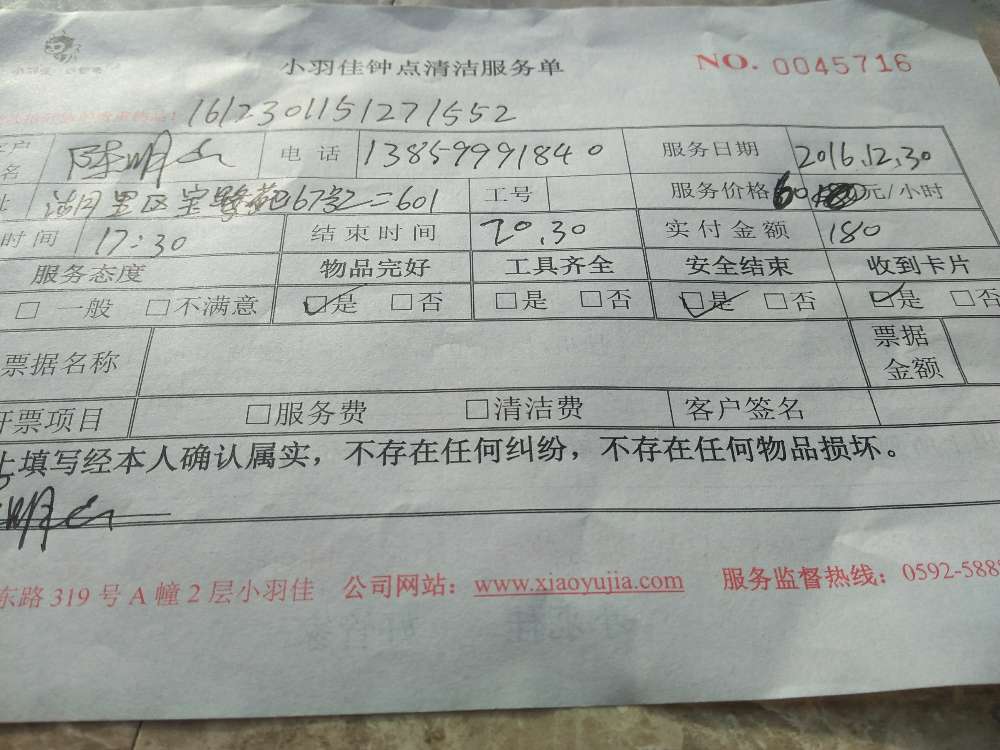 小羽佳钟点清洁服务单 NO. 0045716
1612301151271552
户 名 陈明山 电话 13859991840 服务日期 2016.12.30
址 湖里区宝 67号之二601 工号 服务价格 60 元/小时
时间 17:30 结束时间 20.30 实付金额 180
服务态度 物品完好 工具齐全 安全结束 收到卡片
□ 一般 □不满意 ☑是 □否 □是 □否 ☑是 □否 ☑是 □否
票据名称 票据金额
开票项目 □服务费 □清洁费 客户签名
上填写经本人确认属实，不存在任何纠纷，不存在任何物品损坏。
明山
东路 319 号 A 幢 2 层小羽佳 公司网站：www.xiaoyujia.com 服务监督热线：0592-588